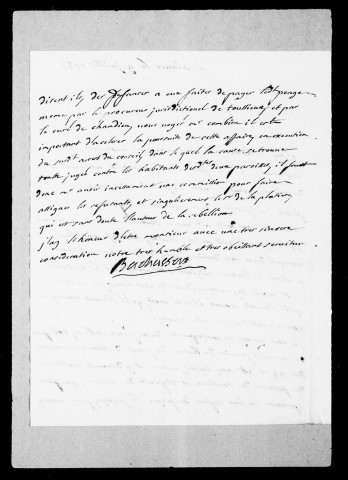 disent ils, des deffances a eux faites de payer ledt peage
meme par le procureur jurisdictionel de toussieux, et par
le curé de chandieu, vous voyés mr combien il est
important d'accelerer la poursuite de cette affaire, en execution
du susdt arrest du conseil dans lequel la cause se trouve
toutte jugée contre les habitants desdtes deux paroisses, il faut
donc mr avoir incessamment une commission pour faire
assigner les refusants, et singulierement le sr de la platiere
qui est sans doute l'auteur de la rebellion
j'ay l'honneur d'etre monsieur avec une tres sincere
consideration votre tres humble et tres obeissant serviteur